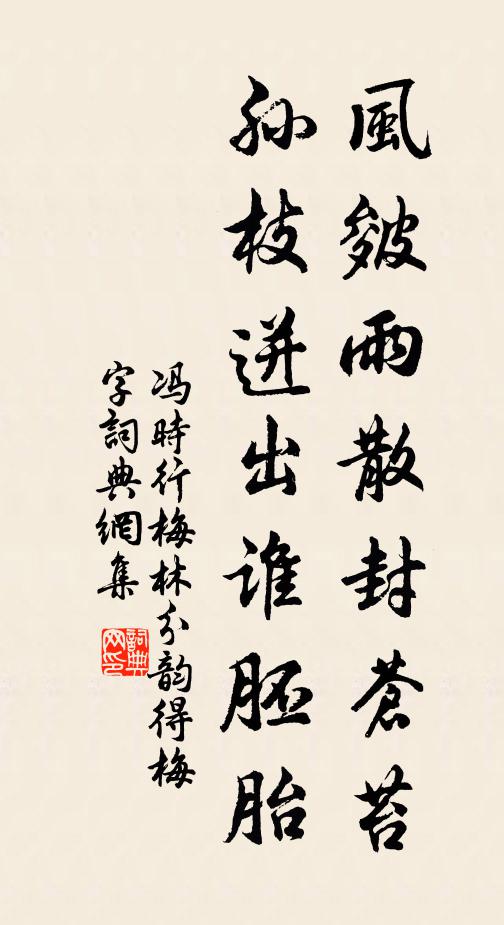 風皴雨散封蒼苔
孙枝迸出谁胚胎
冯時行梅林分韵得梅
字詞典網集
詞典网印